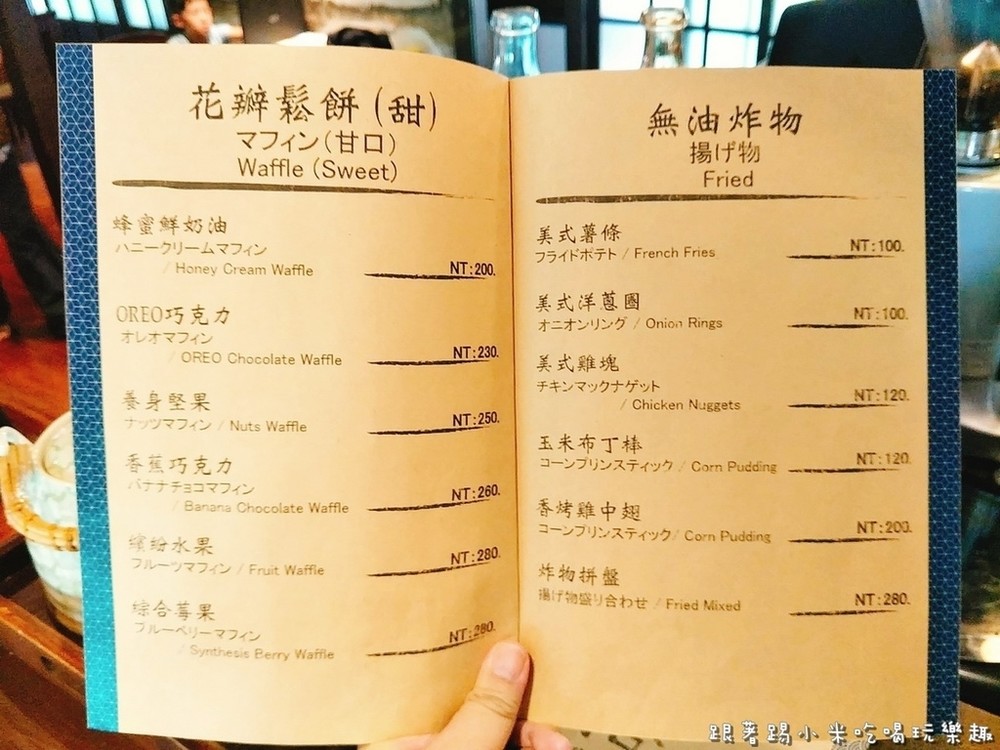 花瓣鬆餅(甜)
マフィン(甘口)
Waffle (Sweet)
蜂蜜鮮奶油
ハニークリームマフィン
/ Honey Cream Waffle
NT:200.
OREO巧克力
オレオマフィン
/ OREO Chocolate Waffle
NT:230.
養身堅果
ナッツマフィン / Nuts Waffle
NT:250.
香蕉巧克力
バナナチョコマフィン
/ Banana Chocolate Waffle
NT:260.
繽紛水果
フルーツマフィン / Fruit Waffle
NT:280.
綜合莓果
ブルーベリーマフィン
/ Synthesis Berry Waffle
NT:280.
無油炸物
揚げ物
Fried
美式薯條
フライドポテト / French Fries
NT:100.
美式洋蔥圈
オニオンリング / Onion Rings
NT:100.
美式雞塊
チキンマックナゲット
/ Chicken Nuggets
NT:120.
玉米布丁棒
コーンプリンスティック / Corn Pudding
NT:120.
香烤雞中翅
コーンプリンスティック / Corn Pudding
NT:200.
炸物拼盤
揚げ物盛り合わせ / Fried Mixed
NT:280.
跟著踢小米吃喝玩樂趣